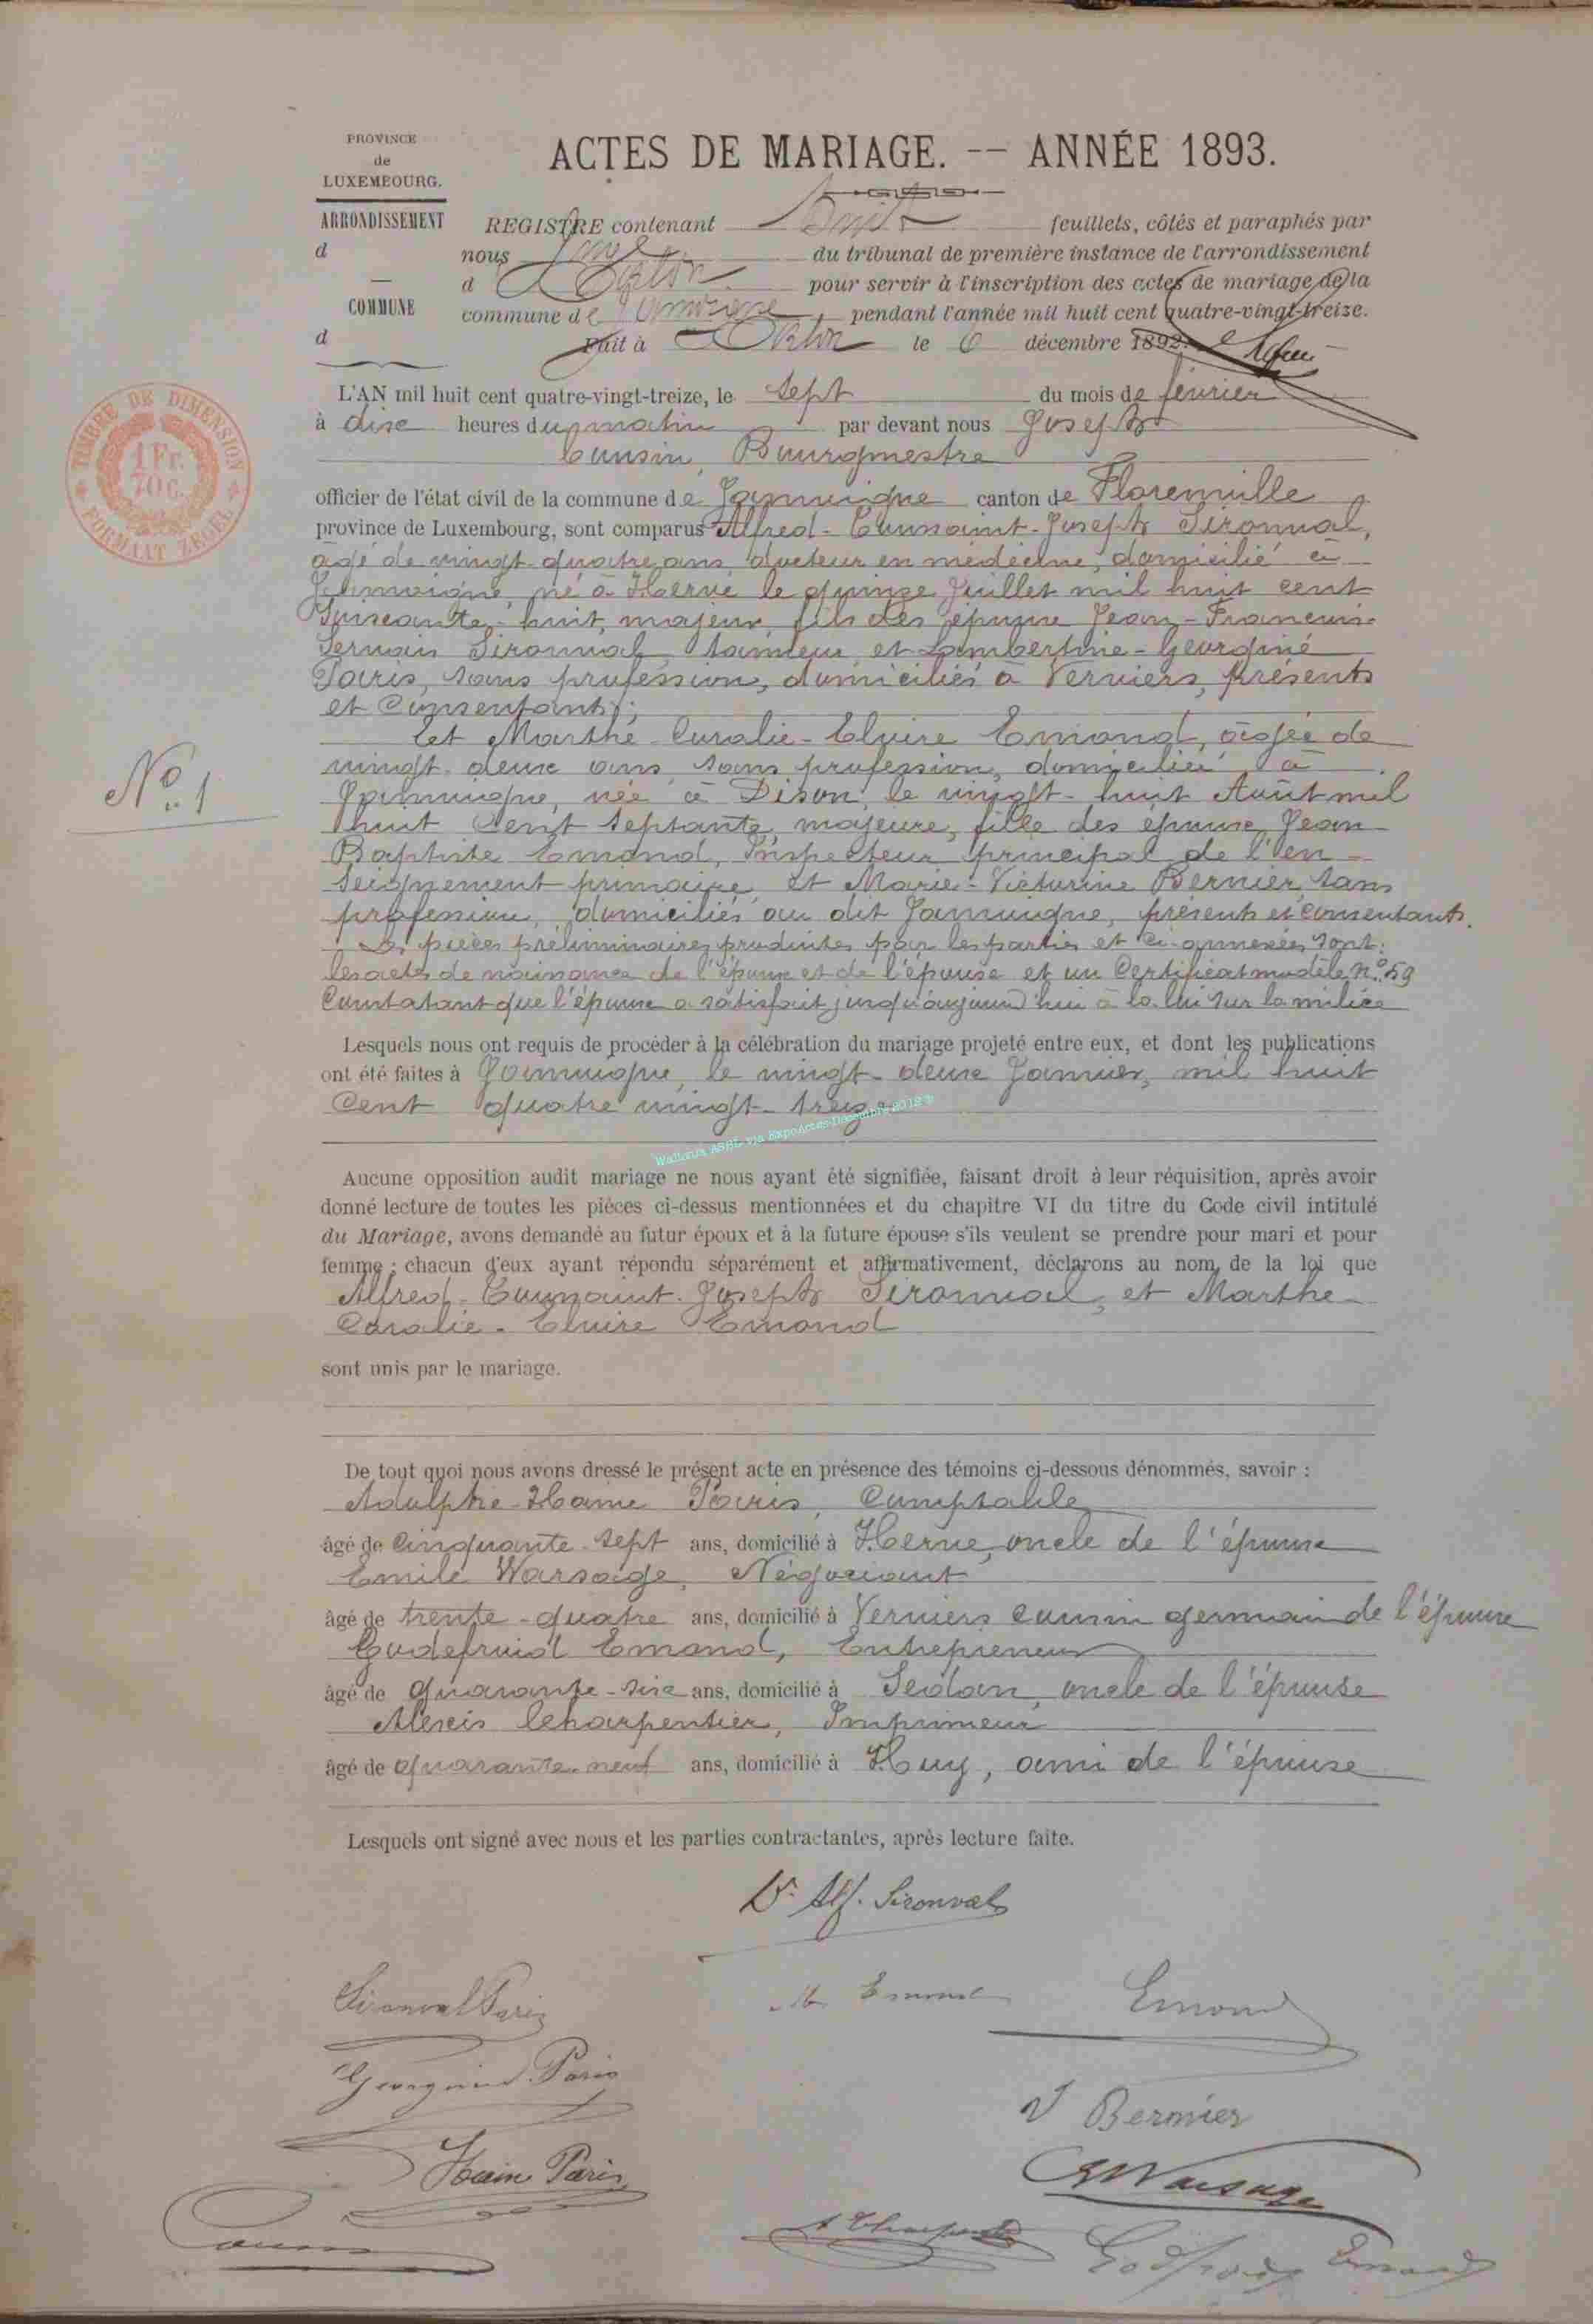 PROVINCE
de
LUXEMBOURG.
ARRONDISSEMENT
d
COMMUNE
d
ACTES DE MARIAGE. -- ANNÉE 1893.
REGISTRE contenant huit feuillets, côtés et paraphés par
nous Juge du tribunal de première instance de l'arrondissement
d'Arlon pour servir à l'inscription des actes de mariage de la
commune de Jamoigne pendant l'année mil huit cent quatre-vingt-treize.
Fait à Arlon le 6 décembre 1892.
TIMBRE DE DIMENSION
1 Fr.
70 C.
FORMAAT ZEGEL
L'AN mil huit cent quatre-vingt-treize, le sept du mois de février
à dix heures du matin par devant nous Joseph
Cousin, Bourgmestre
officier de l'état civil de la commune de Jamoigne canton de Florenville
province de Luxembourg, sont comparus Alfred-Toussaint-Joseph Sironval,
âgé de vingt-quatre ans, docteur en médecine, domicilié à
Jamoigne, né à Herve le quinze Juillet mil huit cent
soixante-huit, majeur, fils des époux Jean-François-
Servais Sironval, tanneur, et Lambertine-Georgine
Paris, sans profession, domiciliés à Verviers, présents
et consentants;
Et Marthe-Coralie-Elvire Emond, âgée de
vingt-deux ans, sans profession, domiciliée à
N° 1
Jamoigne, née à Dison, le vingt-huit Août mil
huit cent septante, majeure, fille des époux Jean-
Baptiste Emond, Inspecteur principal de l'en-
seignement primaire et Marie-Victorine Bernier, sans
profession, domiciliés au dit Jamoigne, présents et consentants.
Les pièces préliminaires produites par les parties et ci-annexées sont:
les actes de naissance de l'époux et de l'épouse et un Certificat modèle N° 59
Constatant que l'époux a satisfait jusqu'aujourd'hui à la loi sur la milice
Lesquels nous ont requis de procéder à la célébration du mariage projeté entre eux, et dont les publications
ont été faites à Jamoigne, le vingt-deux Janvier, mil huit
Cent quatre vingt-treize
Wallonia ASBL via ExpoActes-Décembre 2012 ®
Aucune opposition audit mariage ne nous ayant été signifiée, faisant droit à leur réquisition, après avoir
donné lecture de toutes les pièces ci-dessus mentionnées et du chapitre VI du titre du Code civil intitulé
du Mariage, avons demandé au futur époux et à la future épouse s'ils veulent se prendre pour mari et pour
femme ; chacun d'eux ayant répondu séparément et affirmativement, déclarons au nom de la loi que
Alfred-Toussaint-Joseph Sironval, et Marthe-
Coralie-Elvire Emond
sont unis par le mariage.
De tout quoi nous avons dressé le présent acte en présence des témoins ci-dessous dénommés, savoir :
Adolphe-Haine Paris, Comptable
âgé de Cinquante-sept ans, domicilié à Herve, oncle de l'époux
Emile Warsage, Négociant
âgé de trente-quatre ans, domicilié à Verviers cousin germain de l'époux
Godefroid Emond, Entrepreneur
âgé de quarante-six ans, domicilié à Sedan, oncle de l'épouse
Alexis Charpentier, Imprimeur
âgé de quarante-neuf ans, domicilié à Huy, ami de l'épouse
Lesquels ont signé avec nous et les parties contractantes, après lecture faite.
Dr. Alf. Sironval
Sironval Paris
M. Emond
Emond
Georgine Paris
V Bernier
Hain Paris
E Warsage
Cousin
A Charpentier
Godfroid Emond